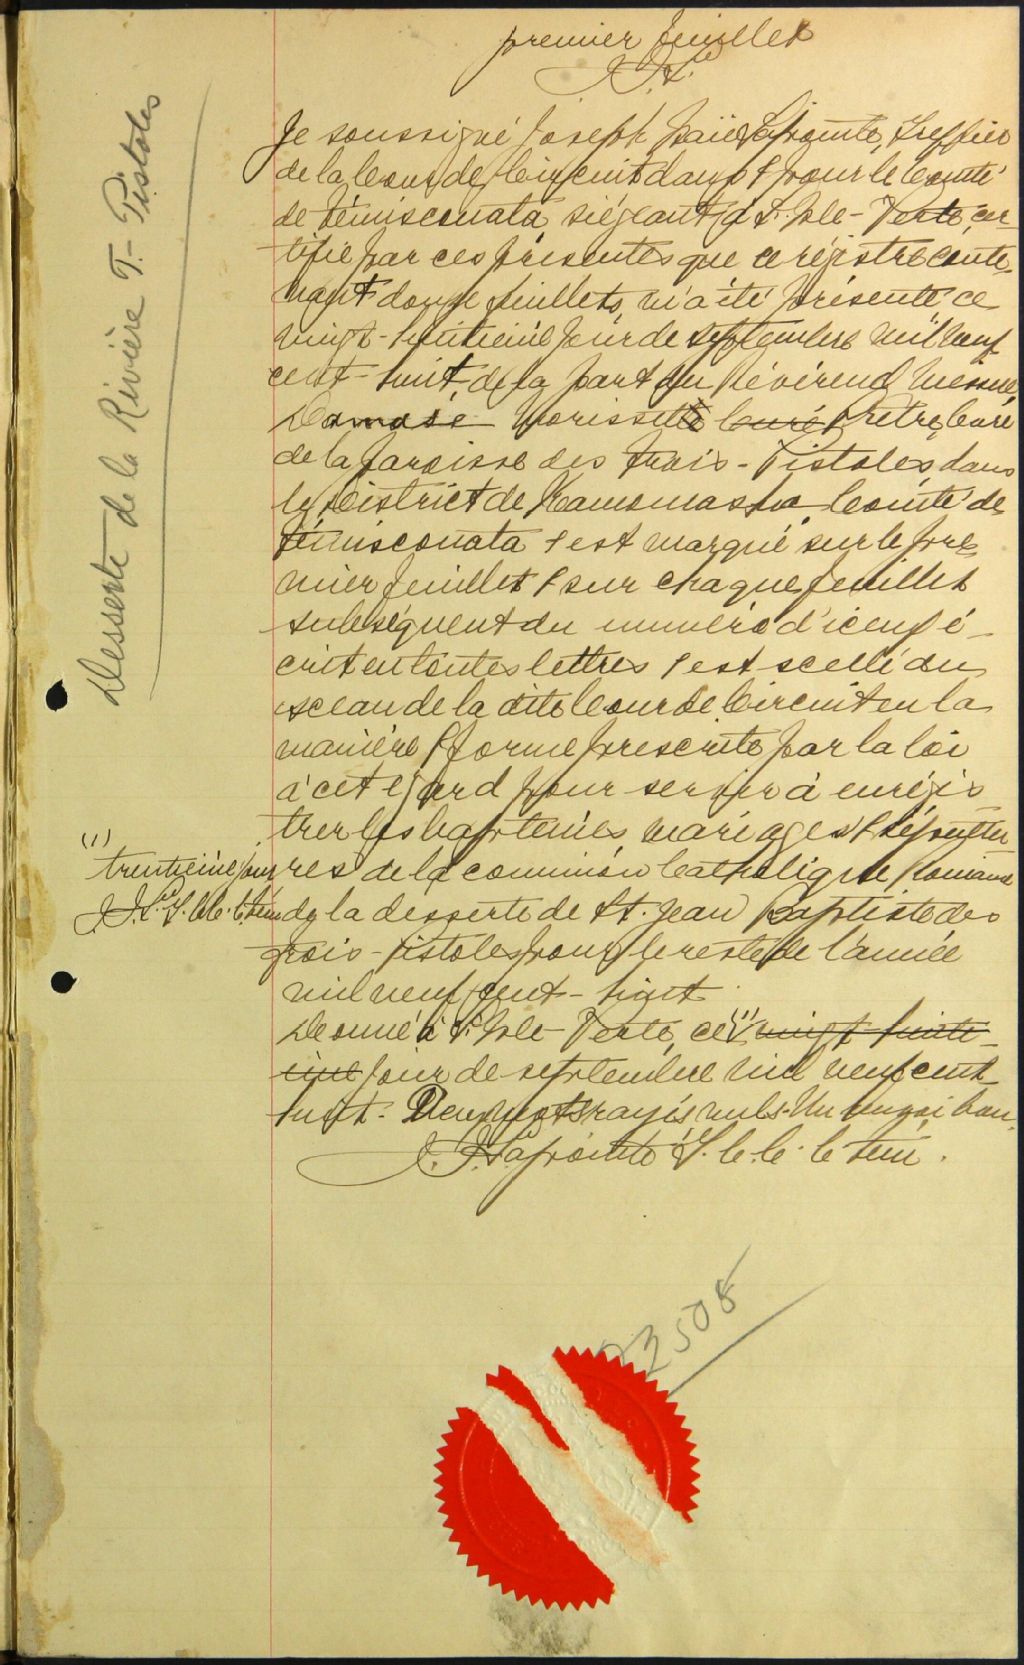 premier feuillet
J. P. L.
Desserte de la Rivière T.-Pistoles
Je soussigné Joseph Lapointe, Greffier
de la Cour de Circuit dans & pour le Comté
de Témiscouata, siégeant à l'Isle-Verte, cer-
tifie par ces présentes que ce régistre conte-
nant douze feuillets, m'a été présenté, ce
vingt-huitième jour de septembre mil neuf
cent-huit, de la part du Révérend Messire
Damase Morissette Curé Prêtre, Curé
de la Paroisse des Trois-Pistoles, dans
le District de Kamouraska, Comté de
Témiscouata & est marqué sur le pre
mier feuillet & sur chaque feuillet
subséquent du numéro d'icelui é-
crit en toutes lettres & est scellé du
sceau de la dite Cour de Circuit en la
manière & forme prescrite par la loi
à cet égard pour servir à enrégis
trer les baptêmes mariages & sépultu
res de la commun̄ion Catholique Romaine
de la desserte de St. Jean Baptiste des
Trois-Pistoles pour le reste de l'année
mil neuf cent-huit.
Donné à l'Isle-Verte, ce (1) vingt huiti-
ème jour de septembre mil neuf cent
huit. Deux mots rayés nuls. Un renvoi bon.
J. P. Lapointe G. C. C. C. Tém.
(1)
trentième jour
J. P. L. G. C. C. C. Tém
23508